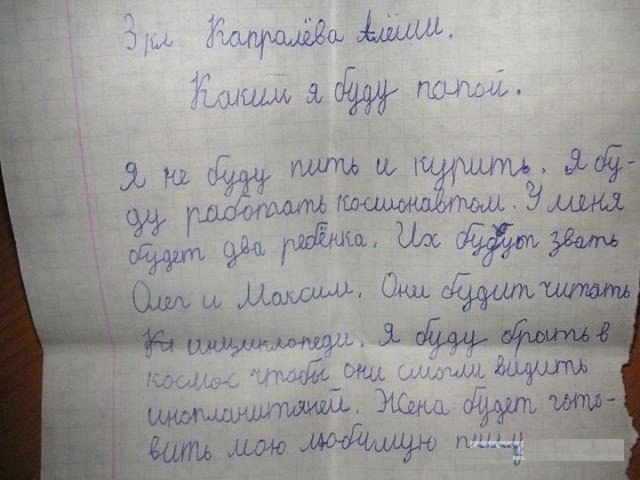 3 кл Капралёва Алёши.
Каким я буду папой.
Я не буду пить и курить. Я бу-
ду работать космонавтом. У меня
будет два ребёнка. Их будут звать
Олег и Максим. Они будит читать
инциклопеди. Я буду брать в
космос чтобы они смогли видить
инопланитяней. Жена будет гото-
вить мою любимую